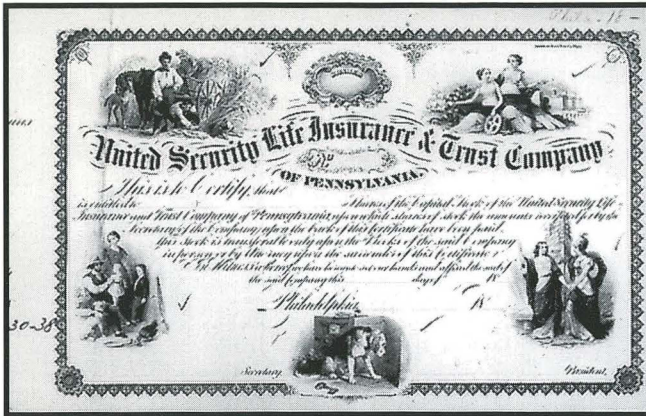 Phila. 18 -
United Security Life Insurance & Trust Company
No
OF PENNSYLVANIA.
This is to Certify, that
is entitled to Shares of the Capital Stock of the United Security Life
Insurance and Trust Company of Pennsylvania, upon which shares of stock the amounts receipted for by the
Secretary of the Company, upon the back of this Certificate have been paid.
This Stock is transferable only upon the Books of the said Company
in person or by Attorney upon the surrender of this Certificate
In Witness whereof we have hereunto set our hands and affixed the seal of
the said Company this day of 18
Philadelphia 18
30-38
Secretary. President.